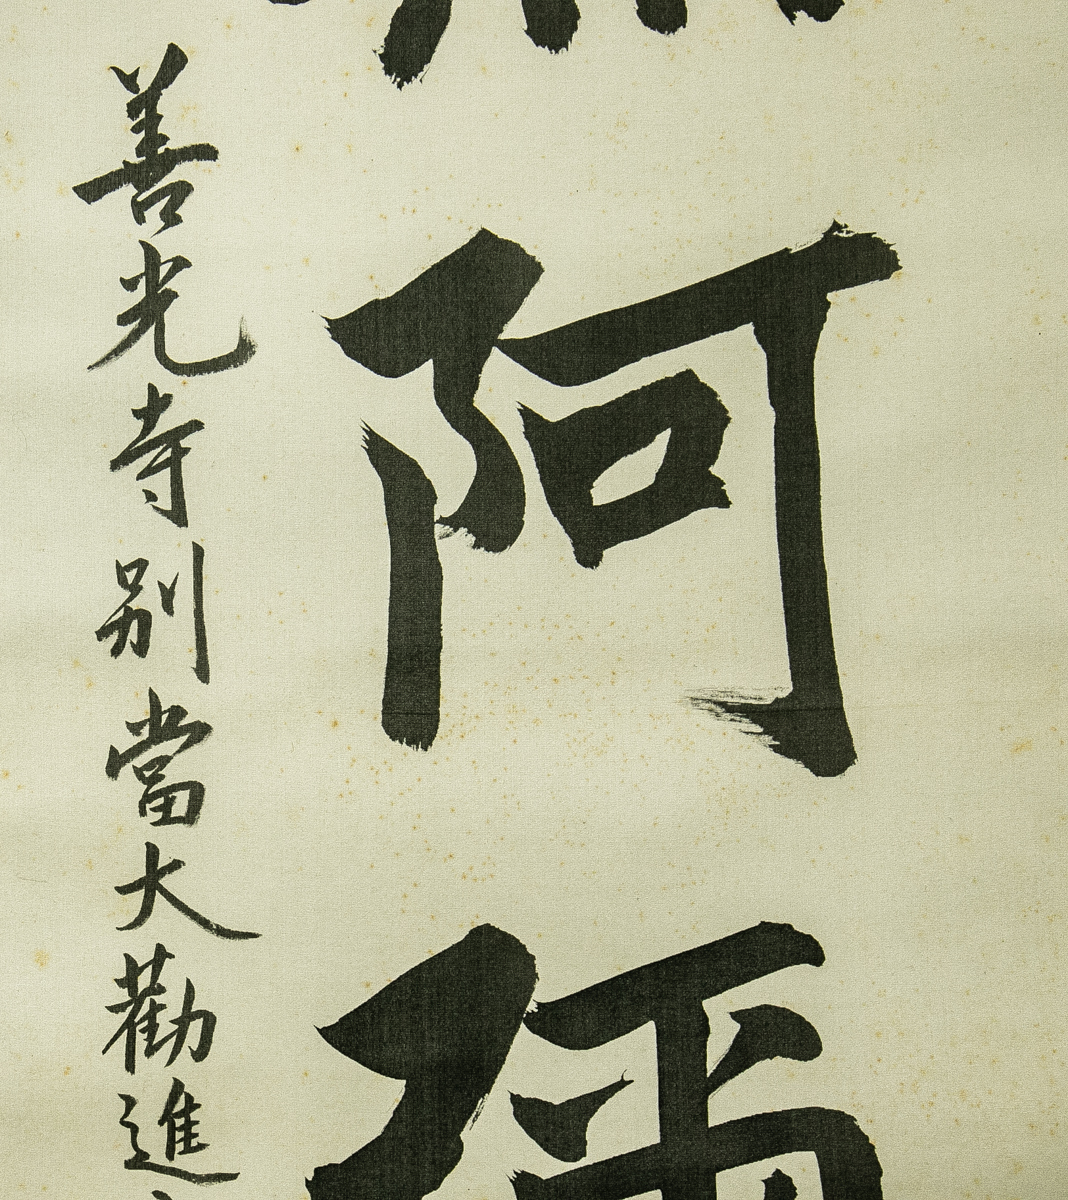 阿彌
善光寺別當大勸進